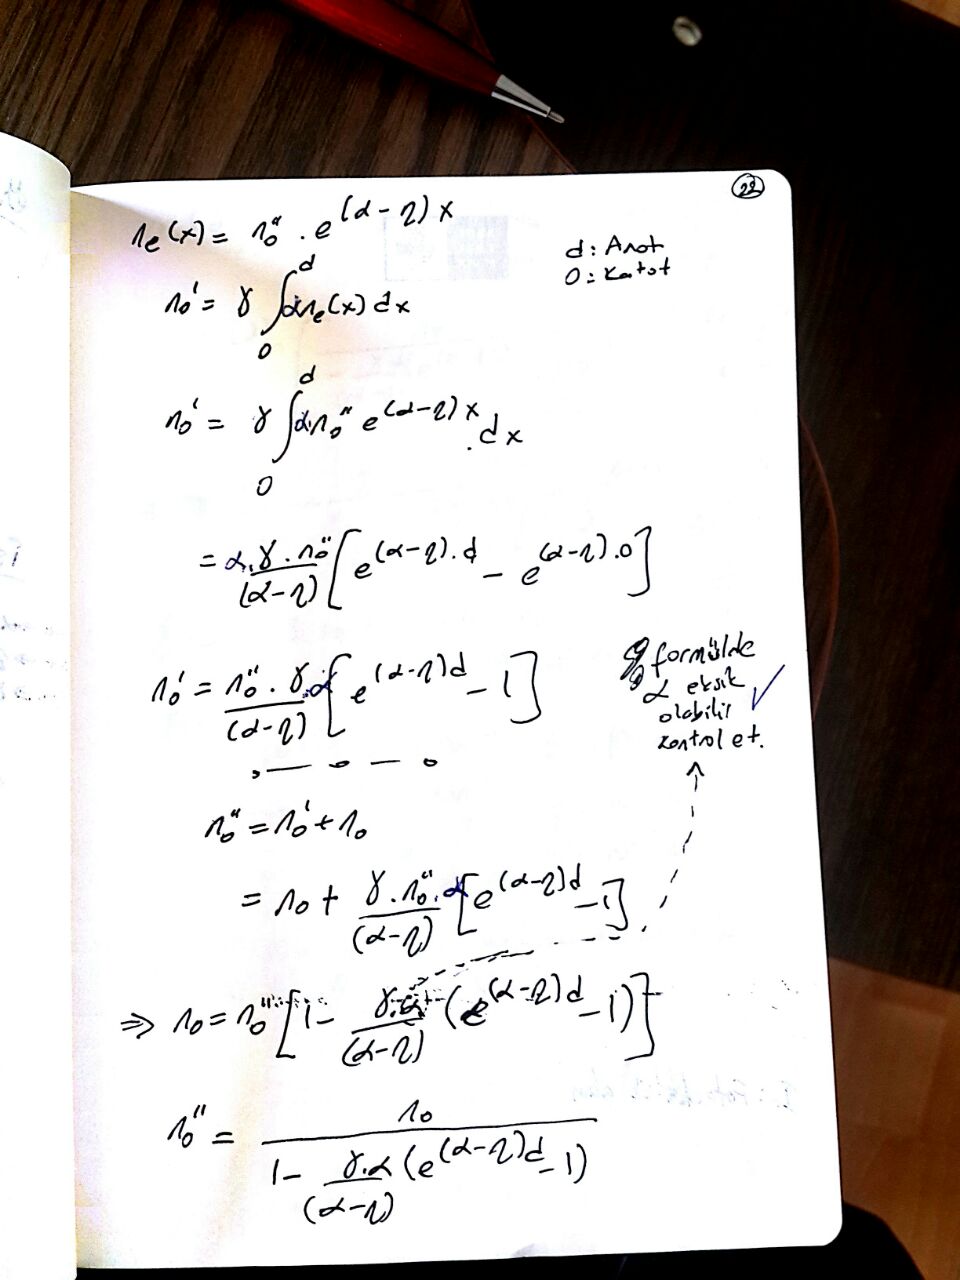 22
nₑ(x) = n₀" . e^(α-η)x
d: Anot
0: Katot
n₀' = γ ∫₀ᵈ αnₑ(x) dx
n₀' = γ ∫₀ᵈ αn₀" e^(α-η)x . dx
= α.γ.n₀"/(α-η) [e^(α-η).d - e^(α-η).0]
n₀' = n₀".γ.α/(α-η) [e^(α-η)d - 1]
formülde
α eksik
olabilir ✓
kontrol et.
n₀" = n₀' + n₀
= n₀ + γ.n₀".α/(α-η) [e^(α-η)d - 1]
⇒ n₀ = n₀" [1 - γ.α/(α-η) (e^(α-η)d - 1)]
n₀" = n₀/(1 - γ.α/(α-η) (e^(α-η)d - 1))